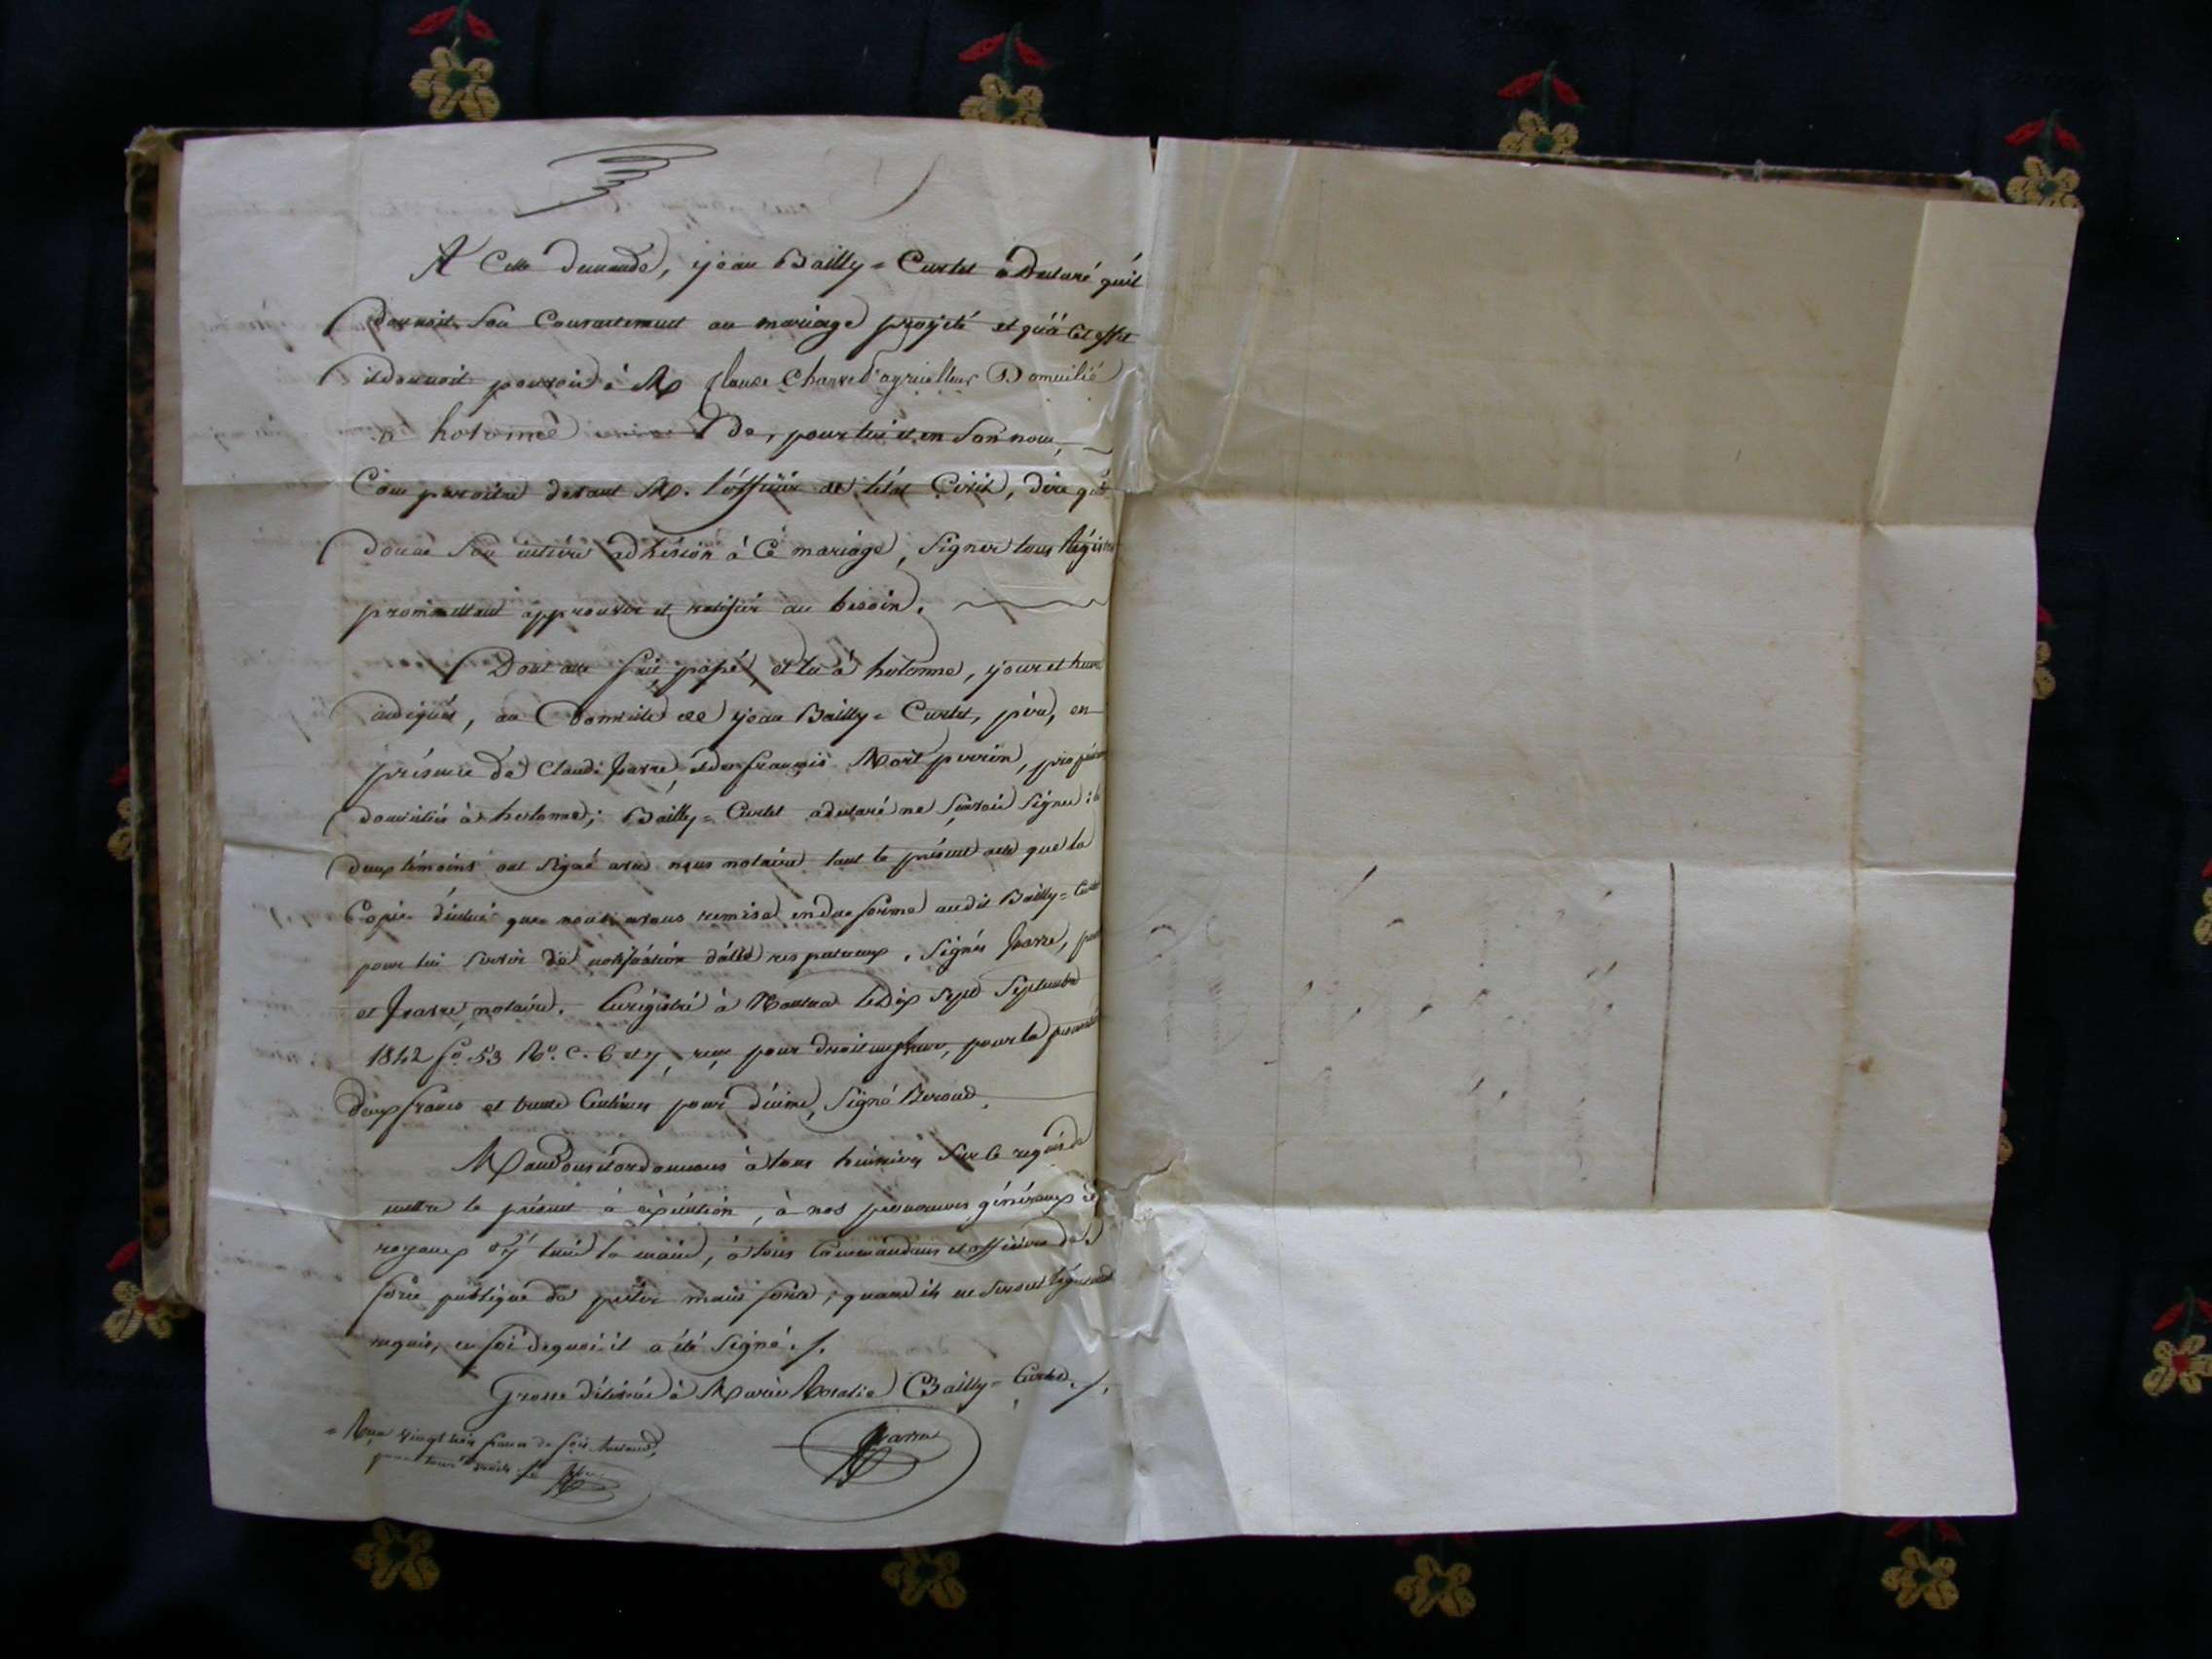 A Cette demande, jean Bailly = Curtet a Declaré qu'il
donnoit son Consentement au mariage projeté et qu'à Cet effet
il donnoit pouvoir à Mr Claude Charvet agriculteur Domicilié
à hotonnes De, pour lui et en Son nom,
Comparoitre devant Mr. l'officier de l'état Civil, dire qu'il
donne son entière adhésion à Ce mariage, Signer tous Régistres
promettant approuver et ratifier au besoin.
Dont acte fait, passé, et lu à hotonne, jour et heure
indiqués, au Domicile de jean Bailly = Curtet, père, en
présence de Claude favre, et de françois Mort perrin, propriétaires
domiciliés à hotonne; Bailly = Curtet a declaré ne Savoir Signer; les
deux témoins ont Signé avec nous notaire tant le présent acte que la
Copie d'icelui que nous avons remise en due forme audit Bailly = Curtet
pour lui Servir de notification d'acte respectueux. Signés favre,
et favre, notaire. Enrégistré à le Dix Sept Septembre
1842 fo. 53 Ro. C. 6 et 7, reçu pour droit
deux francs et trente Centimes pour décime, Signé Beroud.
Mandons et ordonnons à tous huissiers Sur Ce requis de
mettre le présent à exécution, à nos procureurs généraux et
royaux d'y tenir la main, à tous Commandans et officiers de
force publique de prêter main forte, quand ils en Seront légalement
requis, en foi de quoi il a été Signé ./.
Grosse délivrée à Marie Rosalie Bailly = Curtet ./.
favre
= Reçu vingt trois francs
pour tous droits